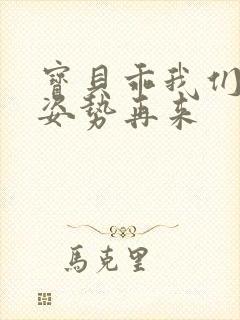 寶貝乖我们
姿势再来
馬克里